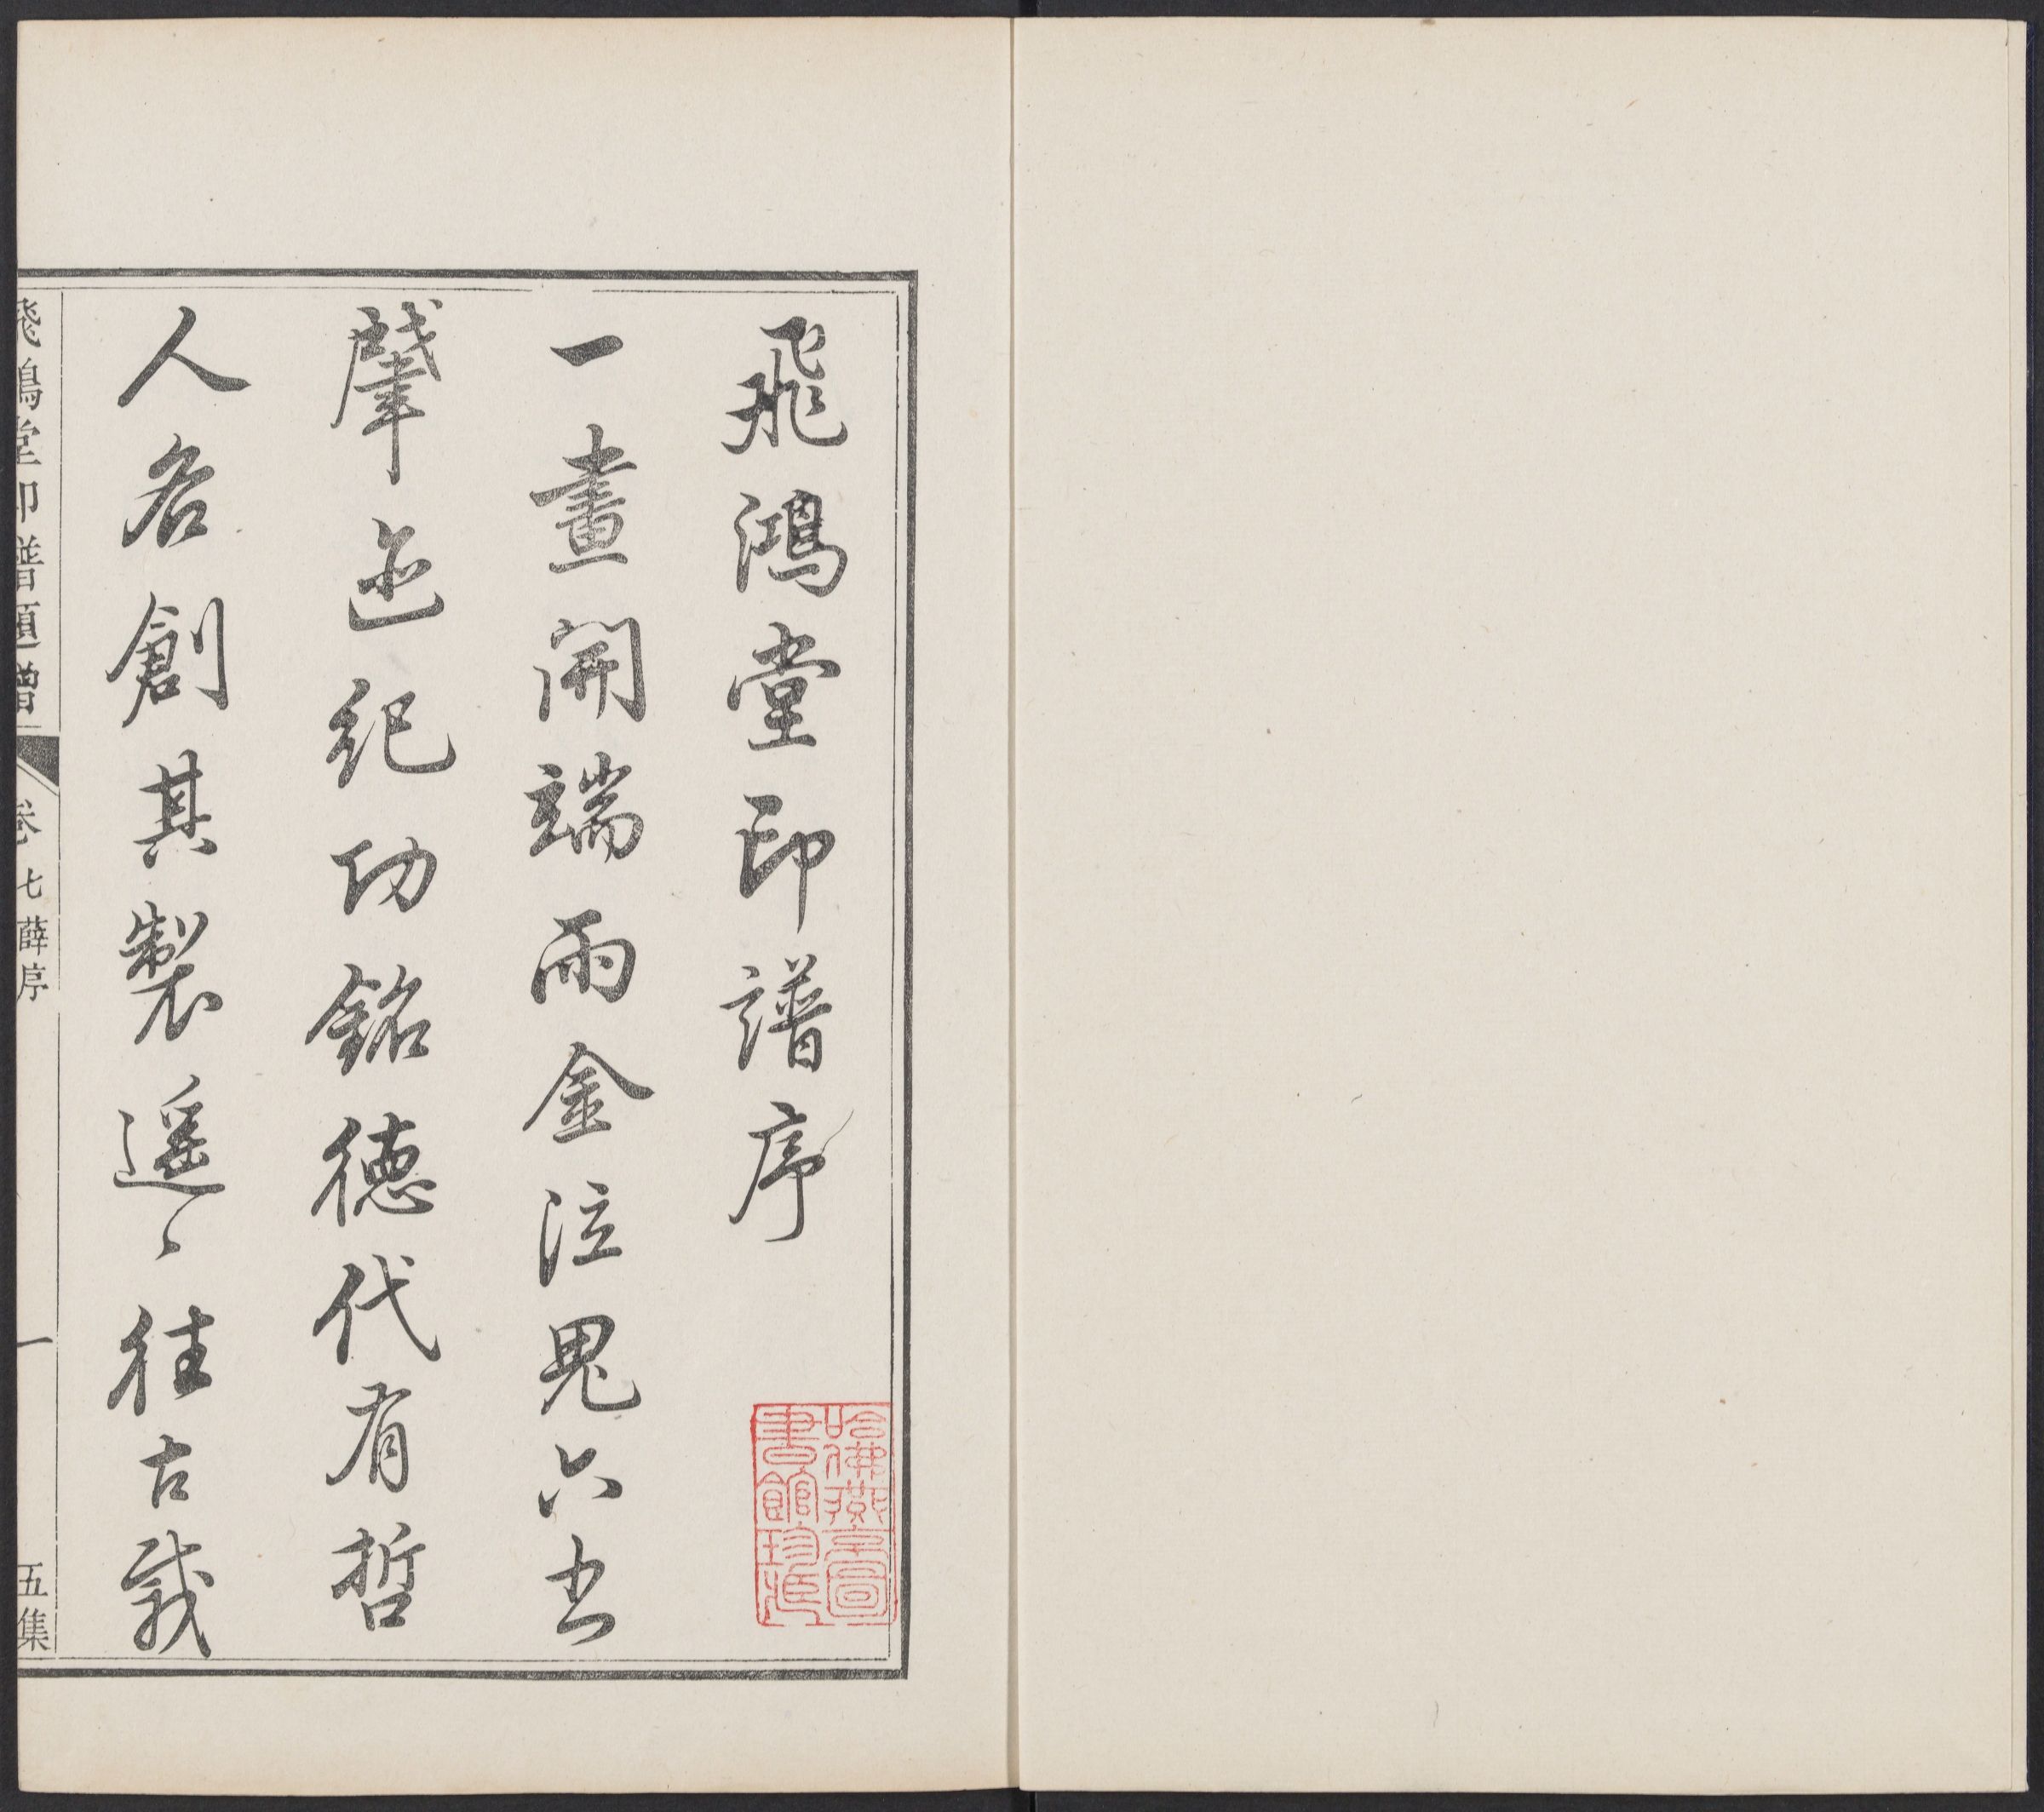 飛鴻堂印譜序
一畫開端雨金泣鬼六书
肈迹紀功銘德代有哲
人各創其製遥〻往古哉
哈佛燕京圖
書館珍藏
飛鴻堂印譜題贈
卷七薛序
一
五集